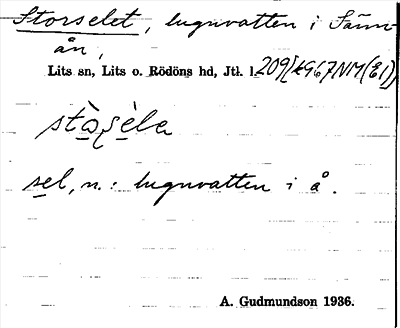 Storselet, lugnvatten i Hårk-
ån,
Lits sn, Lits o. Rödöns hd, Jtl. l.
stòṣèlɐ
sel, n.: lugnvatten i å.
A. Gudmundson 1936.